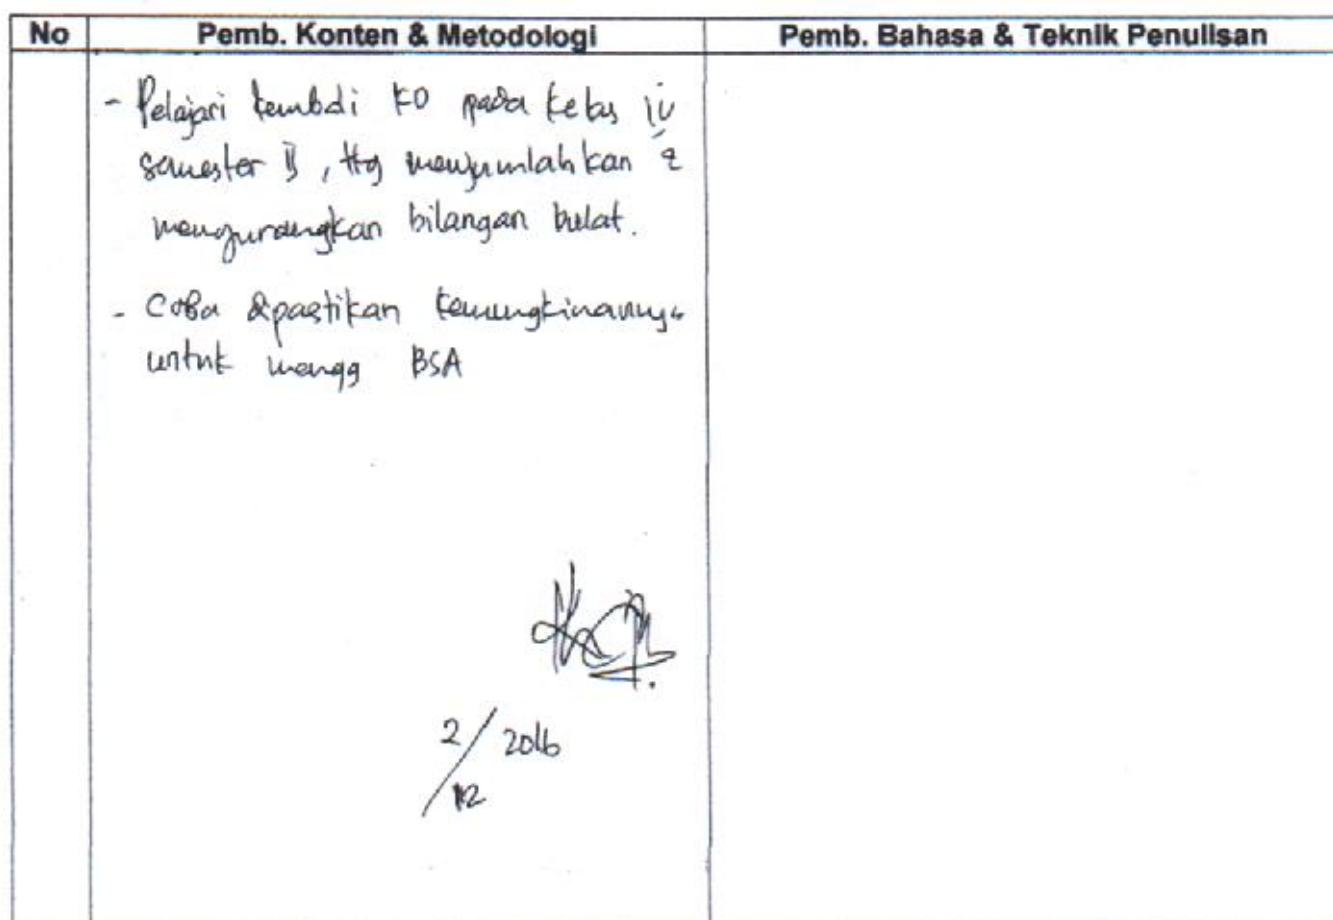 No Pemb. Konten & Metodologi Pemb. Bahasa & Teknik Penulisan
- Pelajari kembali KD pada kelas IV
semester II, ttg menjumlahkan &
mengurangkan bilangan bulat.
- Coba dipastikan kemungkinannya
untuk mengg BSA
2/12 2016